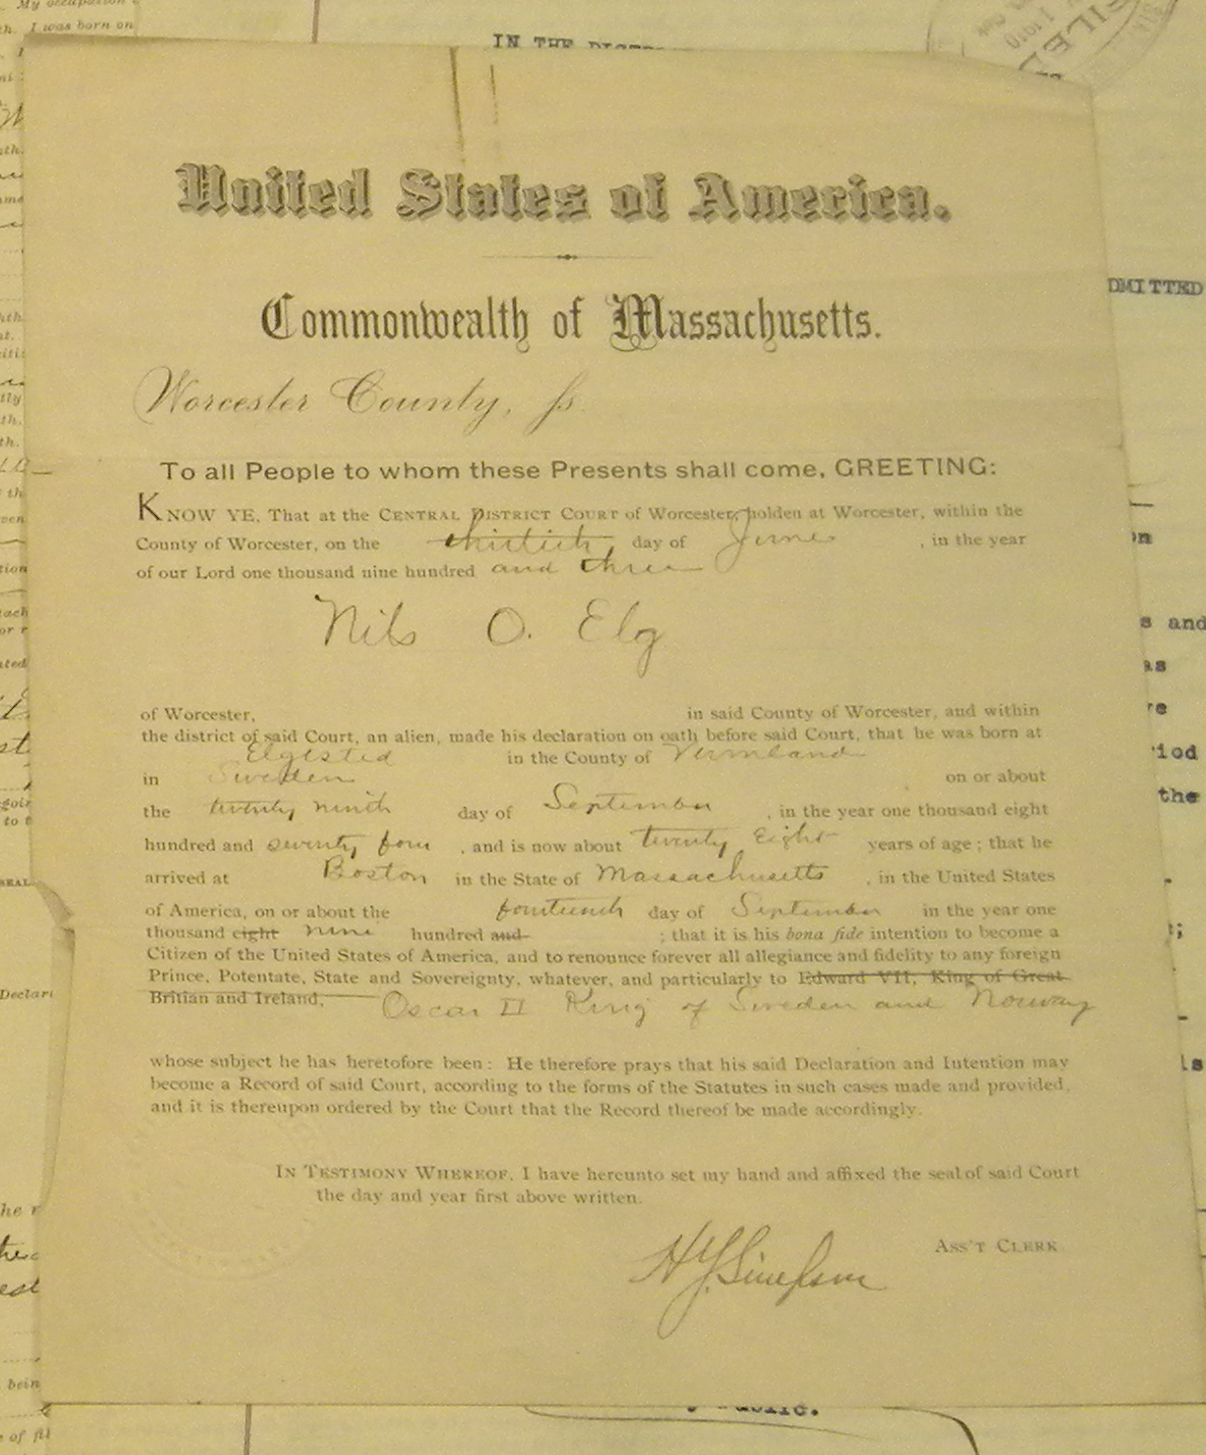 My occupation
I was born on
IN THE
FILED
United States of America.
Commonwealth of Massachusetts.
Worcester County, ss.
To all People to whom these Presents shall come, GREETING:
KNOW YE, That at the CENTRAL DISTRICT COURT of Worcester, holden at Worcester, within the
County of Worcester, on the thirtieth day of June, in the year
of our Lord one thousand nine hundred and three
Nils O. Elg
of Worcester, in said County of Worcester, and within
the district of said Court, an alien, made his declaration on oath before said Court, that he was born at
Elgested in the County of Vermland
in Sweden on or about
the twenty ninth day of September, in the year one thousand eight
hundred and seventy four, and is now about twenty Eight years of age; that he
arrived at Boston in the State of Massachusetts, in the United States
of America, on or about the fourteenth day of September in the year one
thousand eight nine hundred and ; that it is his bona fide intention to become a
Citizen of the United States of America, and to renounce forever all allegiance and fidelity to any foreign
Prince, Potentate, State and Sovereignty, whatever, and particularly to Edward VII, King of Great
Britian and Ireland, Oscar II King of Sweden and Norway
whose subject he has heretofore been: He therefore prays that his said Declaration and Intention may
become a Record of said Court, according to the forms of the Statutes in such cases made and provided,
and it is thereupon ordered by the Court that the Record thereof be made accordingly.
IN TESTIMONY WHEREOF, I have hereunto set my hand and affixed the seal of said Court
the day and year first above written.
H Y Simpson ASS'T CLERK
and
the